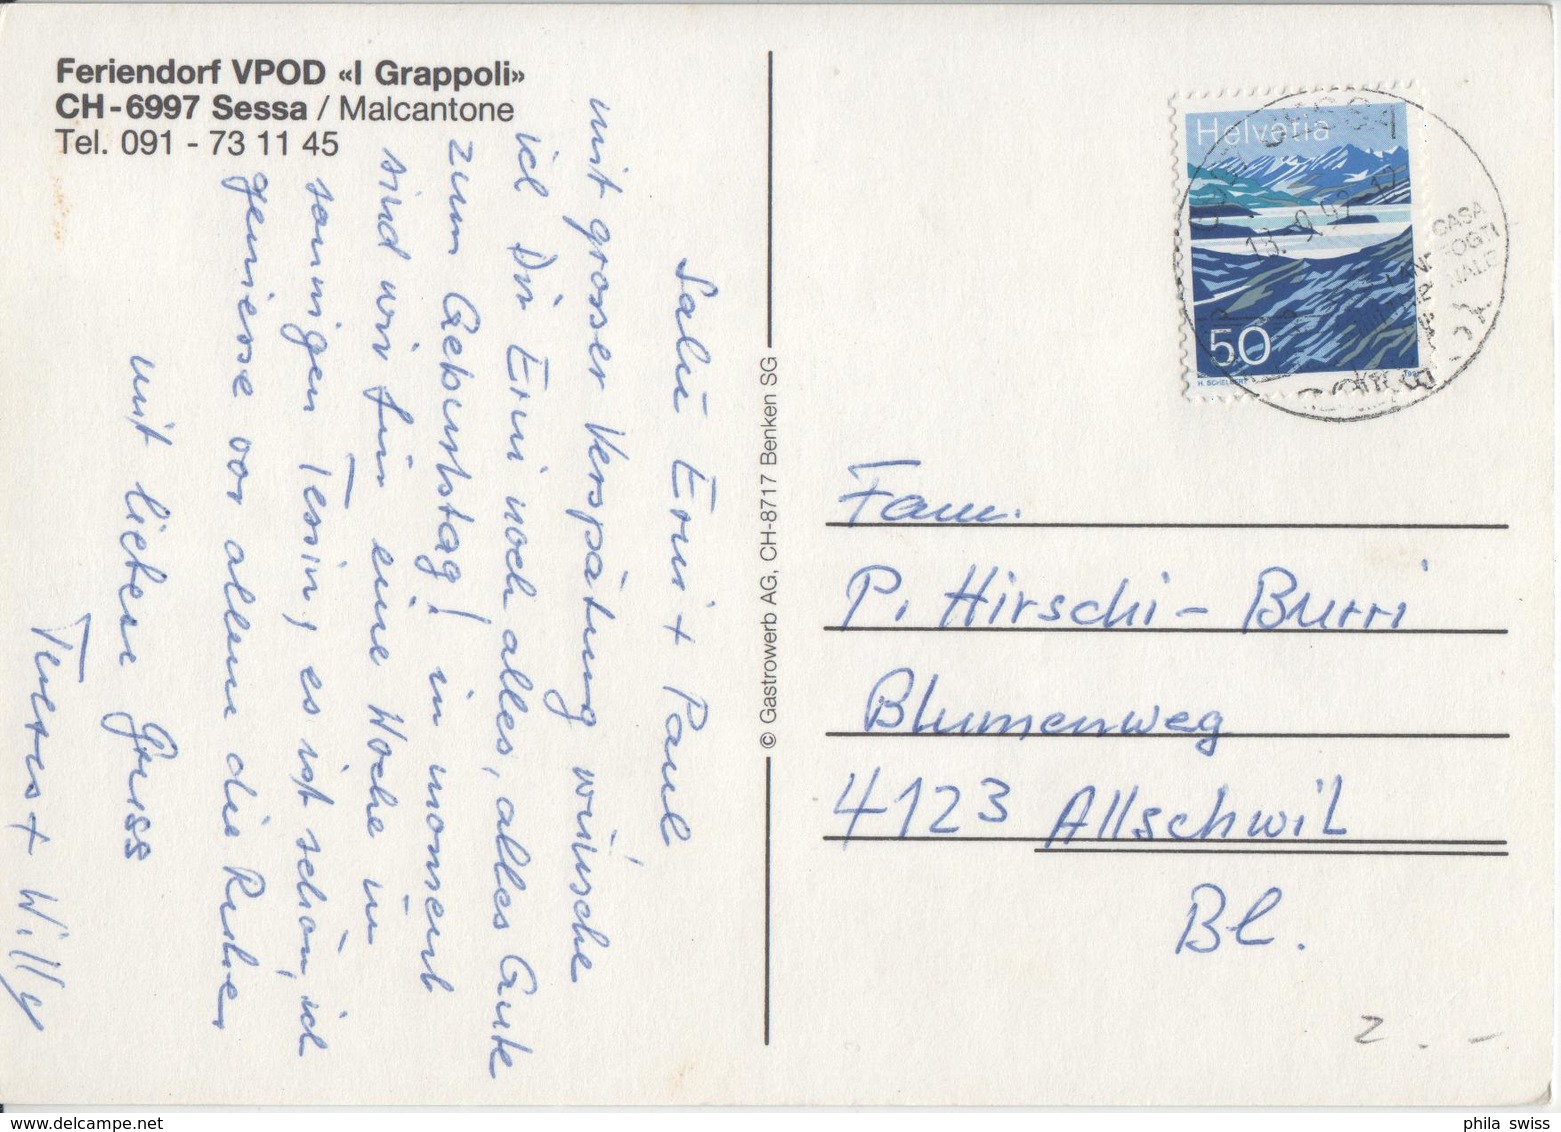 Feriendorf VPOD «I Grappoli»
CH-6997 Sessa / Malcantone
Tel. 091 - 73 11 45
Salü Erni + Paul
mit grosser Verspätung wünsche
ich Dir Erni noch alles, alles Gute
zum Geburtstag! in moment
sind wir für eine Woche im
sonnigen Tessin, es ist schön, ich
geniesse vor allem die Ruhe,
mit lieben Gruss
Theres + Willy
© Gastrowerb AG, CH-8717 Benken SG
Helvetia
50
H. SCHELBERT
SESSA
13.-9.93.-12
CASA
Fam.
P. Hirschi - Burri
Blumenweg
4123 Allschwil
BL.
2.-
phila swiss